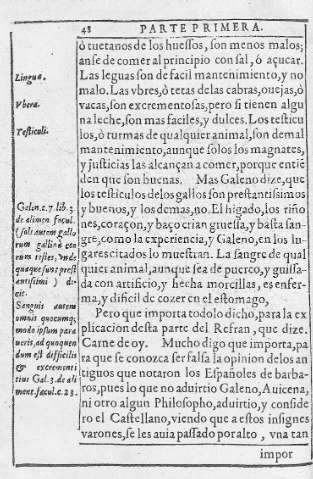 48 PARTE PRIMERA.
ò tuetanos de los huessos, son menos malos;
anse de comer al principio con sal, ò açucar.
Lingua.
Las leguas son de facil mantenimiento, y no
malo. Las vbres, ò tetas delas cabras, ouejas, ò
Vbera.
vacas, son excrementosas, pero si tienen algu
na leche, son mas faciles, y dulces. Los testicu
Testiculi.
los, ò turmas de qualquier animal, son de mal
mantenimiento, aunque solos los magnates,
y justicias las alcançan a comer, porque entiē
den que son buenas. Mas Galeno dize, que
los testiculos delos gallos son prestantissimos
y buenos, y los demas, no. El higado, los riño
nes, coraçon, y baço crian gruessa, y basta san-
gre, como la experiencia, y Galeno, en los lu-
gares citados lo muestran. La sangre de qual
quier animal, aunque sea de puerco, y guissa-
da con artificio, y hecha morcillas, es enfer-
ma, y dificil de cozer en el estomago,
Galen. c. 7. lib. 3.
de alimen. facul.
(soli autem gallo
rum gallinaceo
rum testes, vnde
quaque sunt prest
antissimi) di-
cit.
Sanguis autem
omnis quocumq;
modo ipsum para
ueris, ad quoquen
dum est difficilis
& excrementi
tius Gal. 3. de ali
ment. facul. c. 23.
Pero que importa todo lo dicho, para la ex
plicacion desta parte del Refran, que dize.
Carne de oy. Mucho digo que importa, pa
ra que se conozca ser falsa la opinion delos an
tiguos que notaron los Españoles de barba-
ros, pues lo que no aduirtio Galeno, Auicena,
ni otro algun Philosopho, aduirtio, y conside
ro el Castellano, viendo que a estos insignes
varones, se les auia passado por alto, vna tan
impor